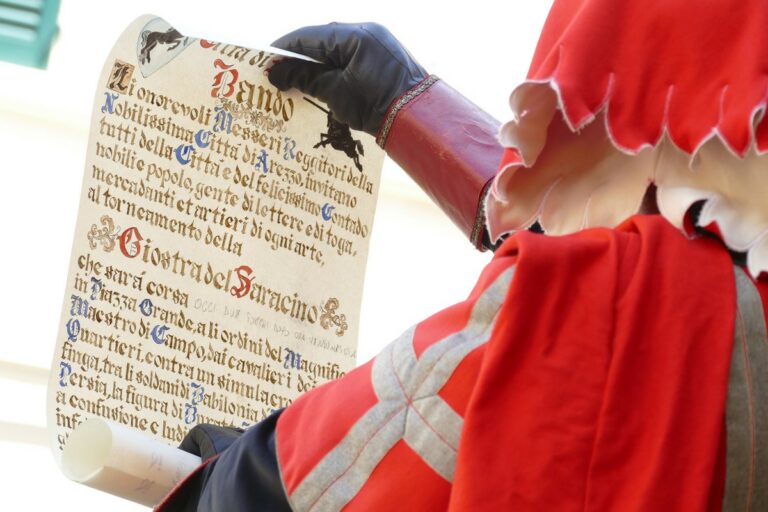 Città di
Bando
Li onorevoli Messeri Reggitori della
Nobilissima Città di Arezzo, invitano
tutti della Città e del felicissimo Contado
nobili e popolo, gente di lettere e di toga,
mercadanti et artieri di ogni arte,
al torneamento della
Giostra del Saracino
che sarà corsa OGGI
in Piazza Grande, a li ordini del Magnifi
Maestro di Campo, dai cavalieri dei
Quartieri, contra un simulacro
finga, tra li soldani di Babilonia
Persia, la figura di
a confusione e